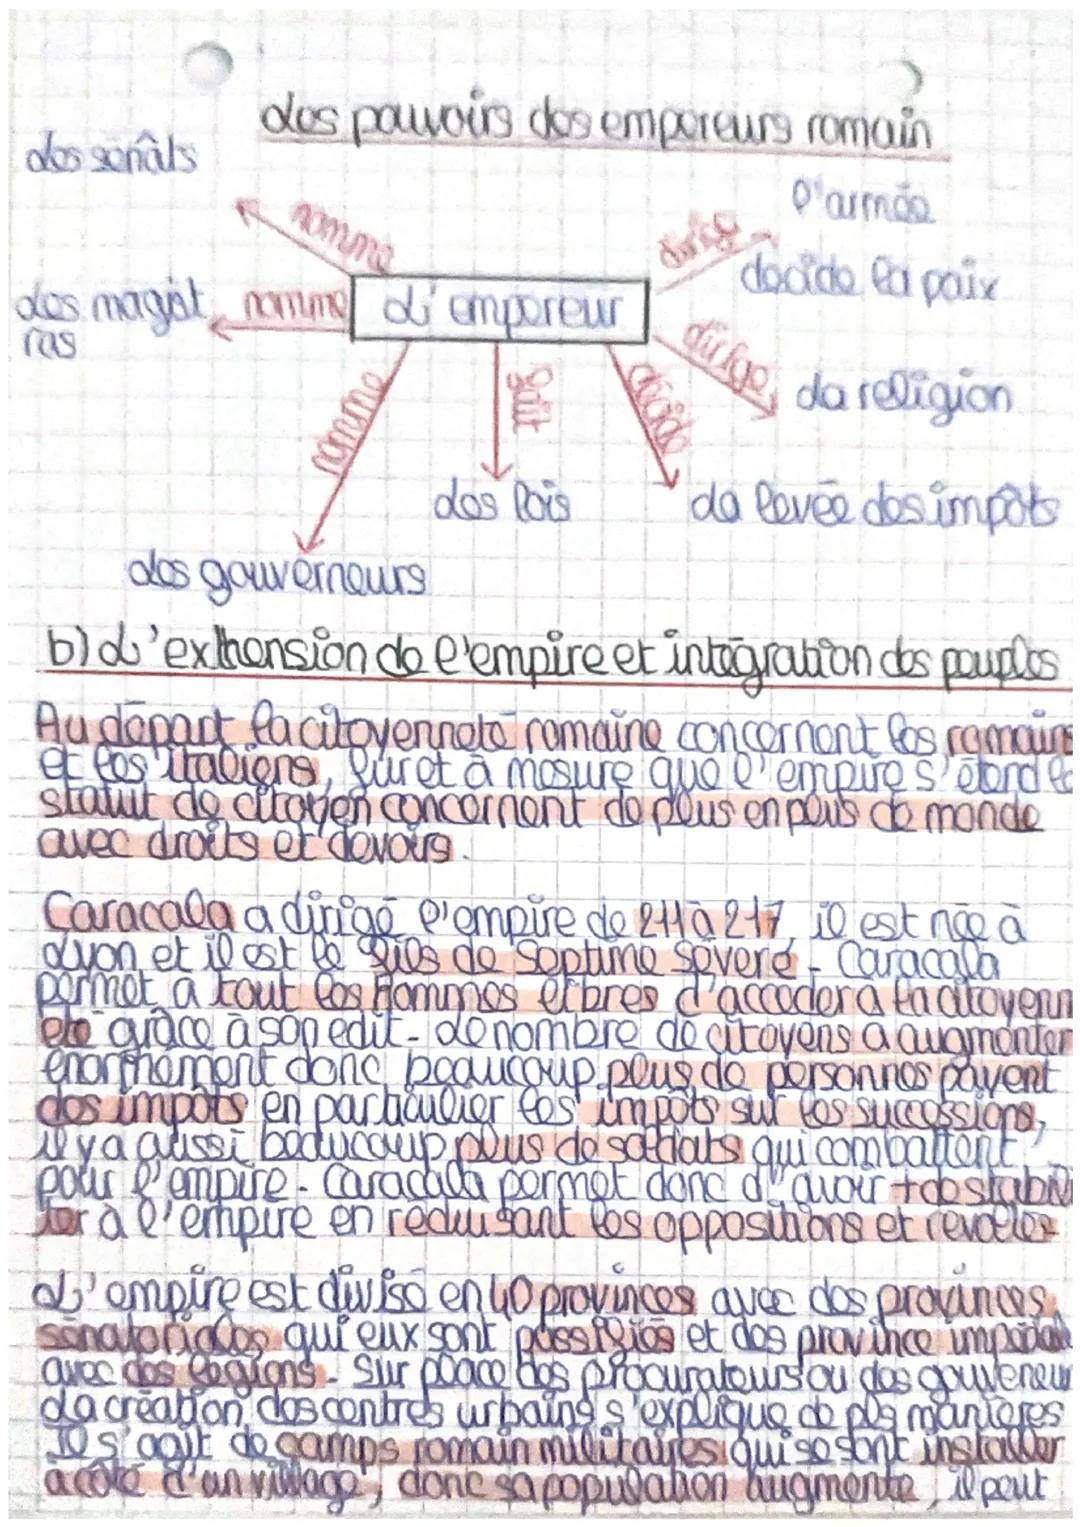 Les pouvoirs des empereurs romain
les sénâts
nomme
dirige
l'armée
décide la paix
les magist
ras
nomme
L'empereur
dirige
La religion
nomme
fait
décide
les lois
La levée des impôts
les gouverneurs
b) L'exthension de l'empire et intégration des peuples
Au départ la citoyenneté romaine concernent les romains
et les italiens, fur et à mesure que l'empire s'étend le
statut de citoyen concernent de plus en plus de monde
avec droits et devoirs.
Caracala a dirigé l'empire de 211 à 217, il est née à
Lyon et il est le fils de Septime Sévere. Caracala
permet a tout les hommes libres d'acceder a la citoyenn
eté grâce à son edit. Le nombre de citoyens a augmenter
énormément donc beaucoup plus de personnes payent
des impôts en particulier les impôts sur les successions,
il y a aussi beaucoup plus de soldats qui combattent
pour l'empire. Caracala permet donc d'avoir + de stabili
ter à l'empire en réduisant les oppositions et revoltes
L'empire est divisé en 40 provinces avec des provinces
sénatoriales qui eux sont passifiés et des province impérial
avec des legions. Sur place des procurateurs ou des gouverneur
La création des centres urbains s'explique de pls manières
Il s'agit de camps romain militaires qui se sont installer
a côté d'un village, donc sa population augmente, il peut